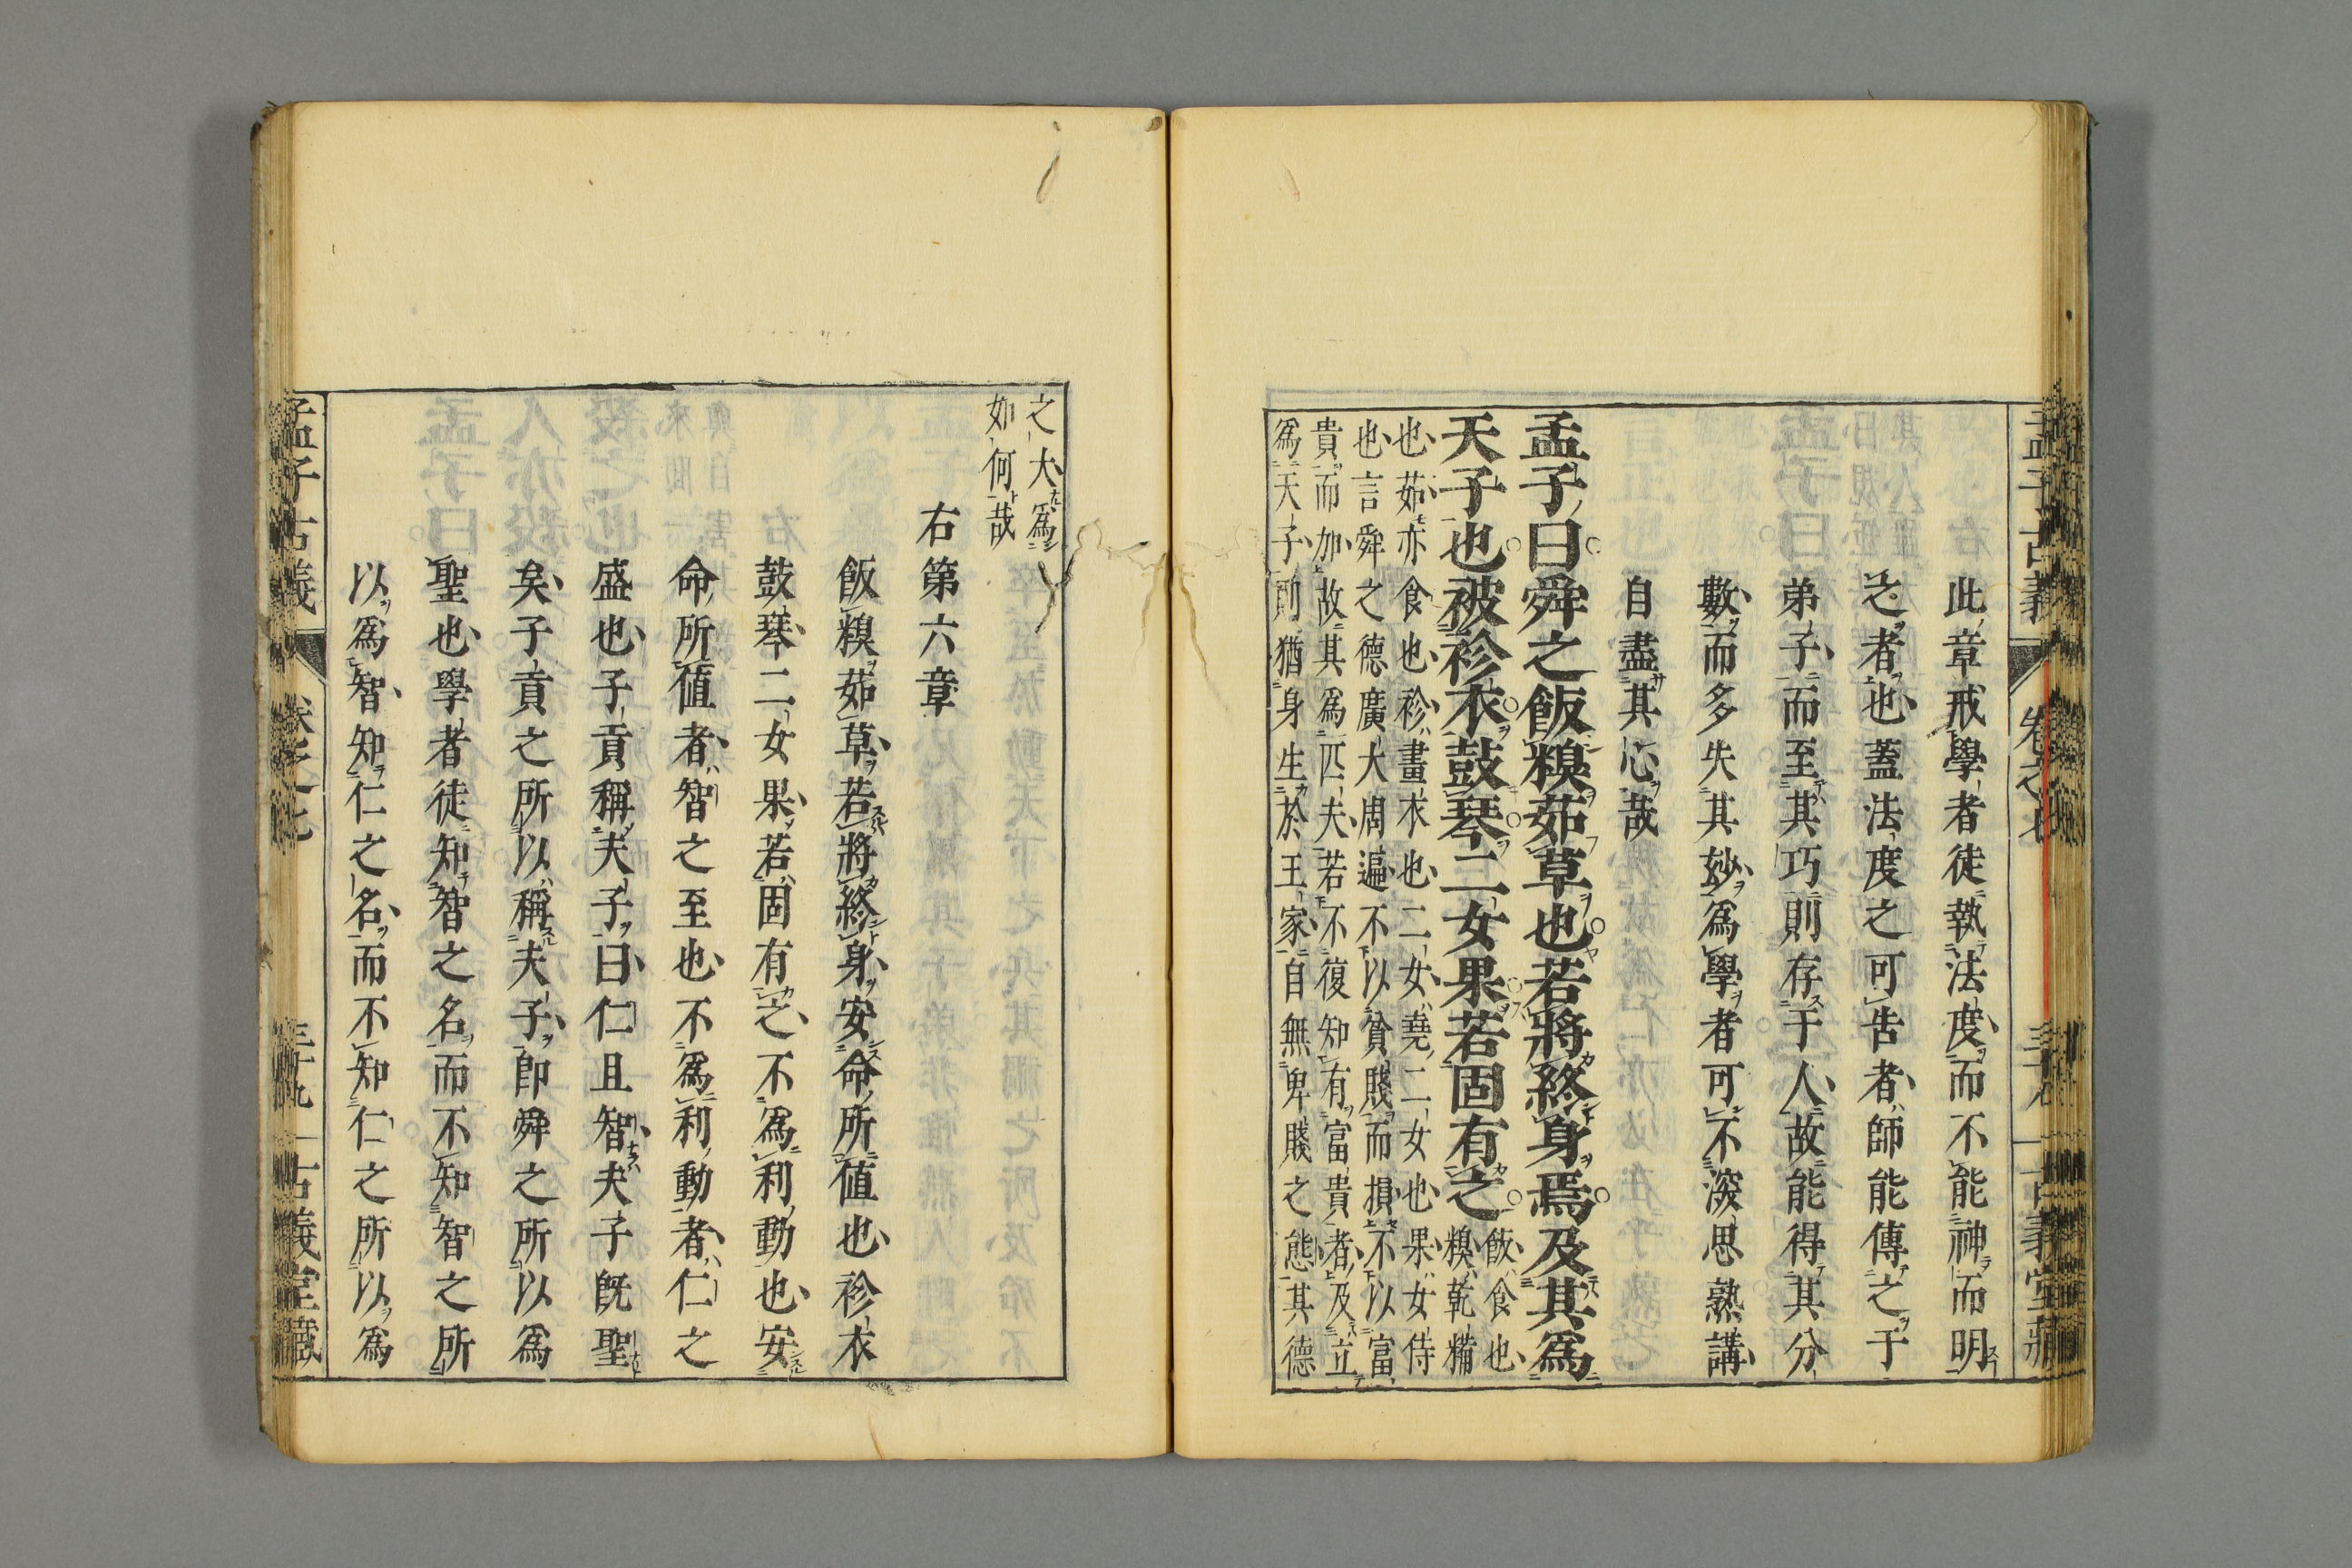 孟子古義 卷之七 古義堂藏
此章戒學者徒執法度而不能神而明
之者也蓋法度之可吿者師能傳之于
弟子而至其巧則存于人故能得其分
數而多失其妙爲學者可不深思熟講
自盡其心哉
孟子曰舜之飯糗茹草也若將終身焉及其爲
天子也被袗衣鼓琴二女果若固有之
飯食也
糗乾糒
也茹亦食也袗畫衣也二女堯二女也果女侍
也言舜之德廣大周遍不以貧賤而損不以富
貴而加故其爲匹夫若不復知有富貴者及立
爲天子則猶身生於王家自無卑賤之態其德
之大爲
如何哉
右第六章
飯糗茹草若將終身安命所値也袗衣
鼓琴二女果若固有之不爲利動也安
命所値者智之至也不爲利動者仁之
盛也子貢稱夫子曰仁且智夫子旣聖
矣子貢之所以稱夫子卽舜之所以爲
聖也學者徒知智之名而不知智之所
以爲智知仁之名而不知仁之所以爲
孟子古義 卷之七 三十九 古義堂藏